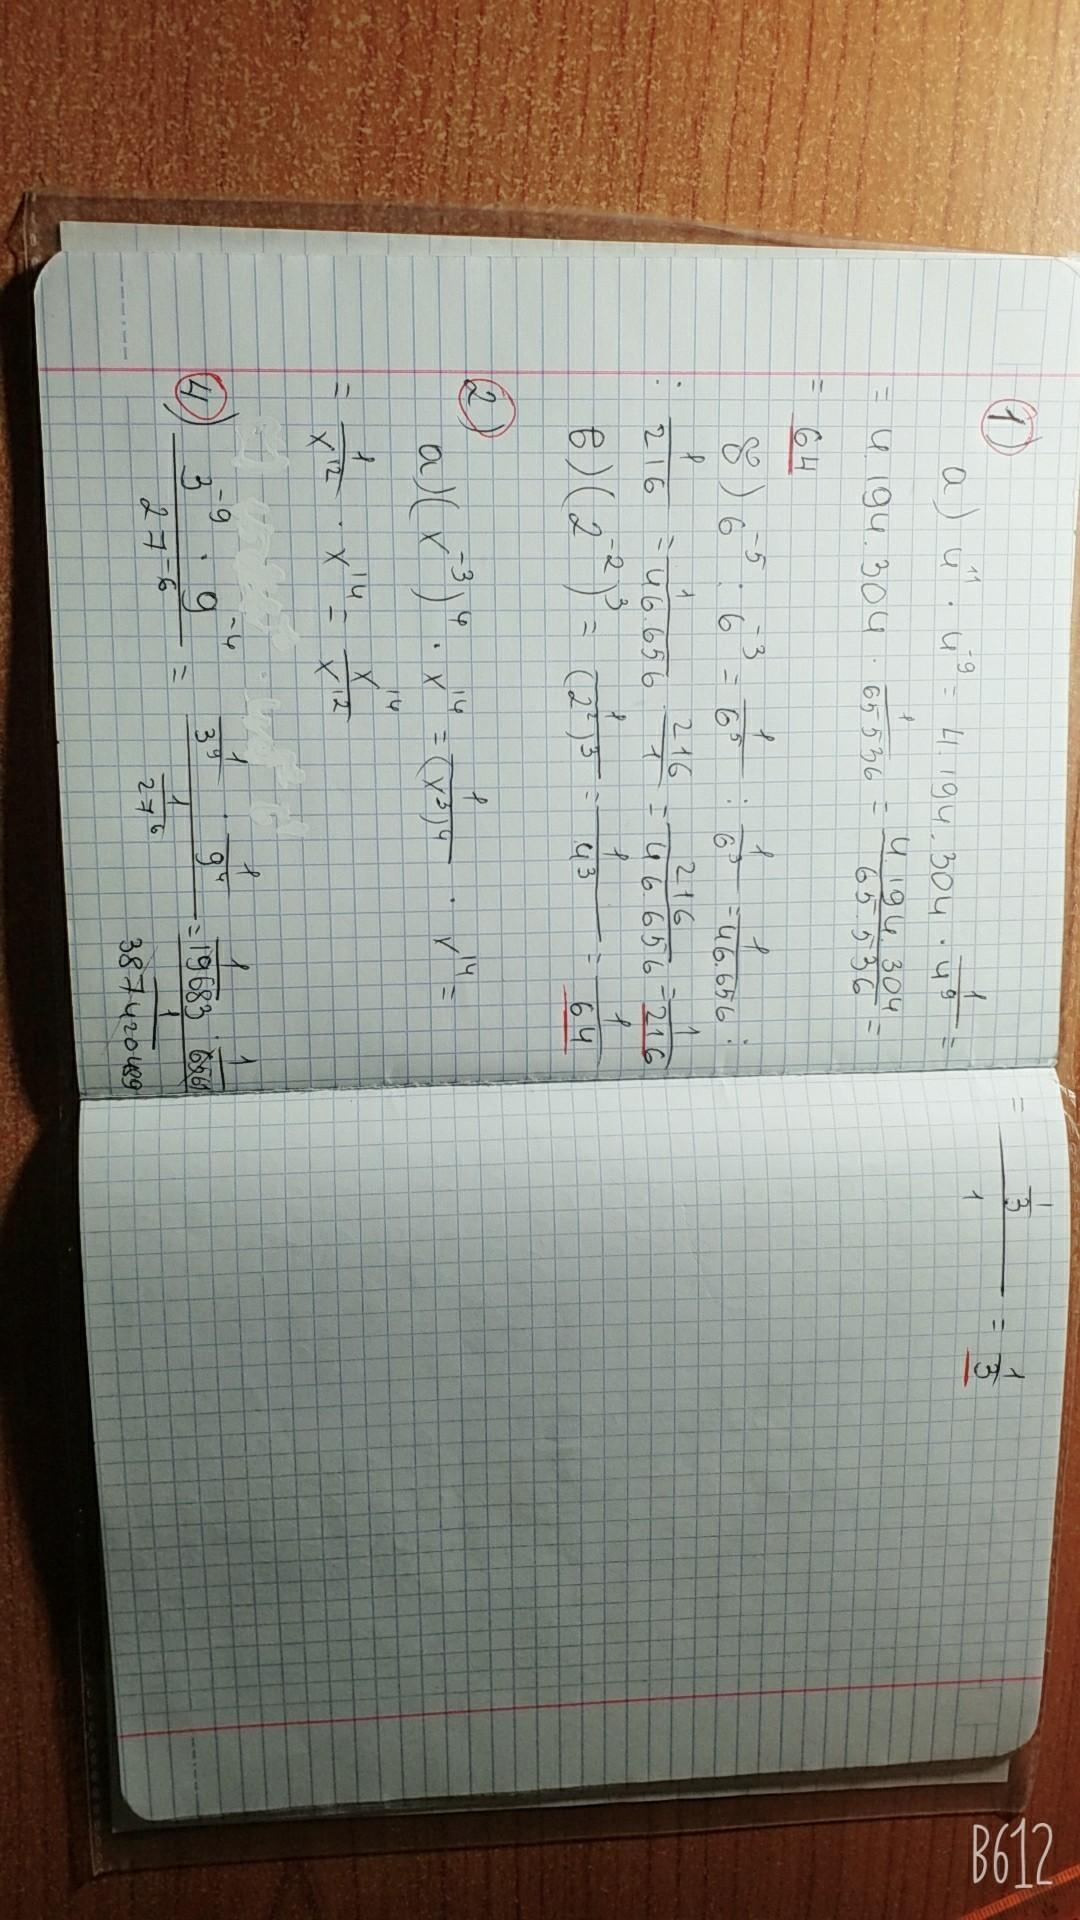 1)
a) 4^11 · 4^-9 = 4.194.304 · 1/4^9 =
= 4.194.304 · 1/65536 = 4.194.304/65.536 =
= 64
б) 6^-5 : 6^-3 = 1/6^5 : 1/6^3 = 1/46.656 :
: 1/216 = 1/46.656 · 216/1 = 216/46.656 = 1/216
в) (2^-2)^3 = 1/(2^2)^3 = 1/4^3 = 1/64
2)
a) (x^-3)^4 · x^14 = 1/(x^3)^4 · x^14 =
= 1/x^12 · x^14 = x^14/x^12
4) 3^-9 · 9^-4 / 27^-6 = 1/3^9 · 1/9^4 / 1/27^6 = 1/19683 · 1/6561 / 1/387420489
= 1/3 / 1 = 1/3
B612